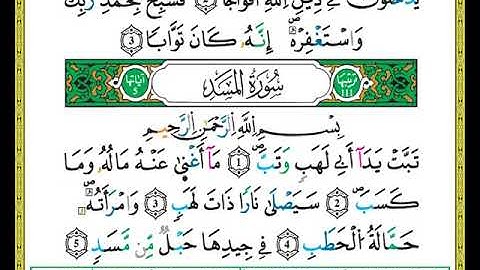 يَدْخُلُونَ فِي دِينِ اللَّهِ أَفْوَاجًا ② فَسَبِّحْ بِحَمْدِ رَبِّكَ
وَاسْتَغْفِرْهُ ۚ إِنَّهُ كَانَ تَوَّابًا ③
آيَاتُهَا 5 سُورَةُ الْمَسَدِ تَرْتِيبُهَا 111
بِسْمِ اللَّهِ الرَّحْمَٰنِ الرَّحِيمِ
تَبَّتْ يَدَا أَبِي لَهَبٍ وَتَبَّ ① مَا أَغْنَىٰ عَنْهُ مَالُهُ وَمَا
كَسَبَ ② سَيَصْلَىٰ نَارًا ذَاتَ لَهَبٍ ③ وَامْرَأَتُهُ
حَمَّالَةَ الْحَطَبِ ④ فِي جِيدِهَا حَبْلٌ مِّن مَّسَدٍ ⑤